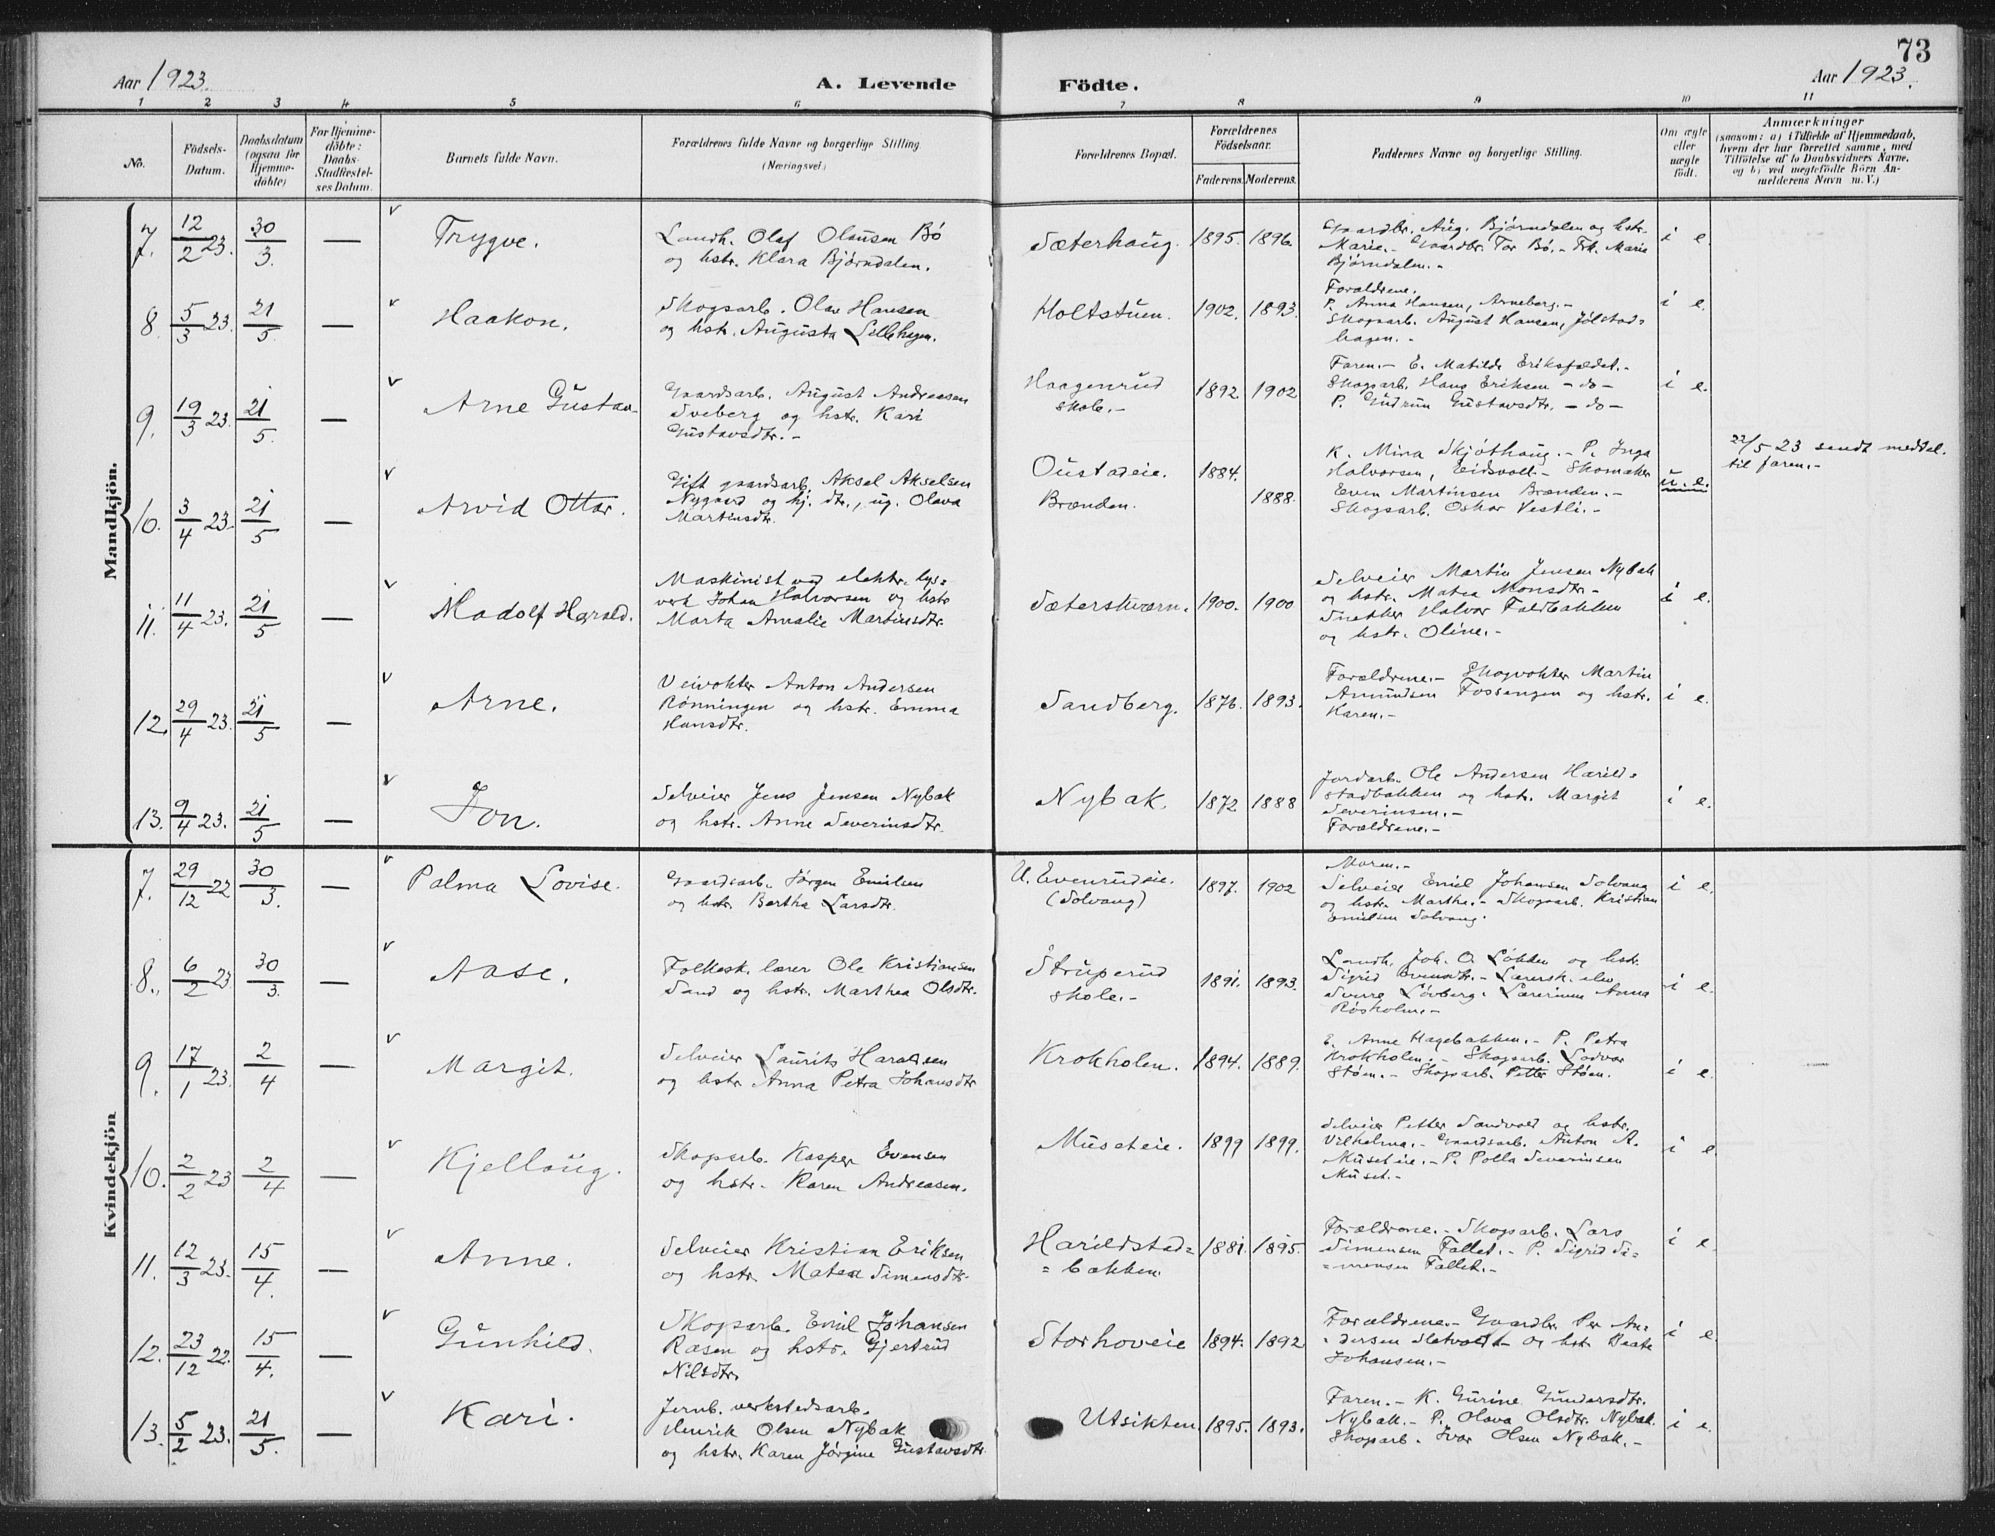 73
Aar 1923. A. Levende Födte. Aar 1923.
1 2 3 4 5 6 7 8 9 10 11
No.
Födsels-Datum.
Daabsdatum (ogsaa för Hjemme-döbte)
For Hjemme-döbte: Daabs-Stadfæstel-ses Datum.
Barnets fulde Navn.
Forældrenes fulde Navne og borgerlige Stilling. (Næringsvei.)
Forældrenes Bopæl.
Forældrenes Födselsaar.
Faderens. Moderens.
Faddernes Navne og borgerlige Stilling.
Om ægte eller uægte födt.
Anmærkninger
(saasom: a) i Tilfælde af Hjemmedaab, hvem der har forrettet samme, med Tilföielse af to Daabsvidners Navne, og b) ved uægtefödte Börn An-melderens Navn m. V.)
Mandkjön.
7. 12/2 23. 30/3. — Trygve.
Landh. Olaf Olausen Bö
og hstr. Klara Bjørndalen.
Sæterhaug. 1895. 1896.
Gaardbr. Aug. Bjørndalen og hstr.
Marie. - Gaardbr. Tor Bø. - Frk. Marie
Bjørndalen. -
i e.
8. 5/3 23. 21/5. — Haakon.
Skogsarb. Olav Hansen
og hstr. Augusta Lillehagen.
Holtstuen. 1902. 1893.
Forældrene.
P. Anna Hansen, Arneberg. -
Skogsarb. August Hansen, Jølstad=
hagen. -
i e.
9. 19/3 23. 21/5. — Arne Gustav
Gaardsarb. August Andreasen
Sveberg og hstr. Kari
Gustavsdtr. -
Haagenrud
skole. - 1892. 1902
Faren. - E. Matilde Eriksfædet. -
Skogsarb. Hans Eriksen - do -
P. Gudrun Gustavsdtr. - do -
i e.
10. 3/4 23. 21/5 — Arvid Ottar.
Gift gaardsarb. Aksel Akselsen
Nygaard og hj. dtr., ug. Olava
Martinsdtr.
Oustadeie. 1884.
Brænden. 1888.
K. Mina Skjøthaug. - P. Inga
Halvorsen, Eidsvoll - Skomaker
Even Martinsen Brænden. -
Skogsarb. Oskar Vestli. -
u. e.
22/5 23 sendt meddel.
til faren. -
11. 11/4 23. 21/5 — Madolf Harald.
Maskinist ved elektr. lys=
verk Johan Halvorsen og hstr
Marta Amalie Martinsdtr.
Sæterskværn. 1900. 1900
Selveier Martin Jensen Nybak
og hstr. Matea Monsdtr. -
Snekker Halvor Faldbakken
og hstr. Oline. -
i e.
12. 29/4 23. 21/5 — Arne.
Veivokter Anton Andersen
Rønningen og hstr. Emma
Hansdtr.
Sandberg. 1876. 1893.
Forældrene. - Skogvokter Martin
Amundsen Fossengen og hstr.
Karen. -
i e.
13. 9/4 23. 21/5 — Jon.
Selveier Jens Jensen Nybak
og hstr. Anne Severinsdtr.
Nybak. 1872 1888
Jordarb. Ole Andersen Harild=
stadbakken og hstr. Margit
Severinsen. -
Forældrene. -
i e.
Kvindekjön
7. 29/12 22 30/3. — Palma Lovise.
Gaardsarb. Jørgen Emilsen
og hstr Bertha Larsdtr.
U. Evenrudeie.
(Solvang) 1897. 1902
Moren. -
Selveier Emil Johansen Solvang
og hstr. Marthe. - Skogsarb. Kristian
Emilsen Solvang.
i e.
8. 6/2 23 30/3. — Aase.
Folkesk. lærer Ole Kristiansen
Sand og hstr. Marthea Olsdtr.
Struperud
skole. - 1891. 1893.
Landh. Joh. O. Løkken og hstr.
Sigrid Evensdtr. - Lærersk. elev
Sverre Løvberg. Lærerinne Anna
Røsholm. -
i e.
9. 17/1 23. 2/4 — Margit.
Selveier Laurits Haraldsen
og hstr. Anna Petra Johansdtr
Krokholen. 1894. 1889.
E. Anne Hagebakken. - P. Petra
Krokholen. - Skogsarb. Lodvar
Støen. - Skogsarb. Petter Støen.
i e.
10. 2/2 23 2/4 — Kjellaug.
Skogsarb. Kasper Evensen
og hstr. Karen Andreasen.
Museteie. 1899 1899.
Selveier Petter Sandvold og hstr.
Vilhelma. - Gaardsarb. Anton A.
Museteie. - P. Polla Severinsen
Muset. -
i e.
11. 12/3 23. 15/4. — Anne.
Selveier Kristian Eriksen
og hstr. Matea Simensdtr.
Harildstad=
=bakken. 1881. 1895.
Forældrene. - Skogsarb. Lars
Simensen Fallet. - P. Sigrid Si=
=mensen Fallet. -
i e.
12. 23/12 22. 15/4. — Gunhild.
Skogsarb. Emil Johansen
Rasen og hstr. Gjertrud
Nilsdtr.
Storhoveie 1894. 1892
Forældrene. - Gaardbr. Per An=
=dersen Hetvold - og hstr. Beate
Johansen. -
i e
13. 5/2 23. 21/5. — Kari.
Jernb. verkstedsarb.
Henrik Olsen Nybak
og hstr. Karen Jørgine Gustavsdtr.
Utsikten. 1895. 1893.
Faren. - K. Gurine Gundersdtr.
Nybak. - P. Olava Olsdtr. Nybak.
Skogsarb. Ivar Olsen Nybak. -
i e.